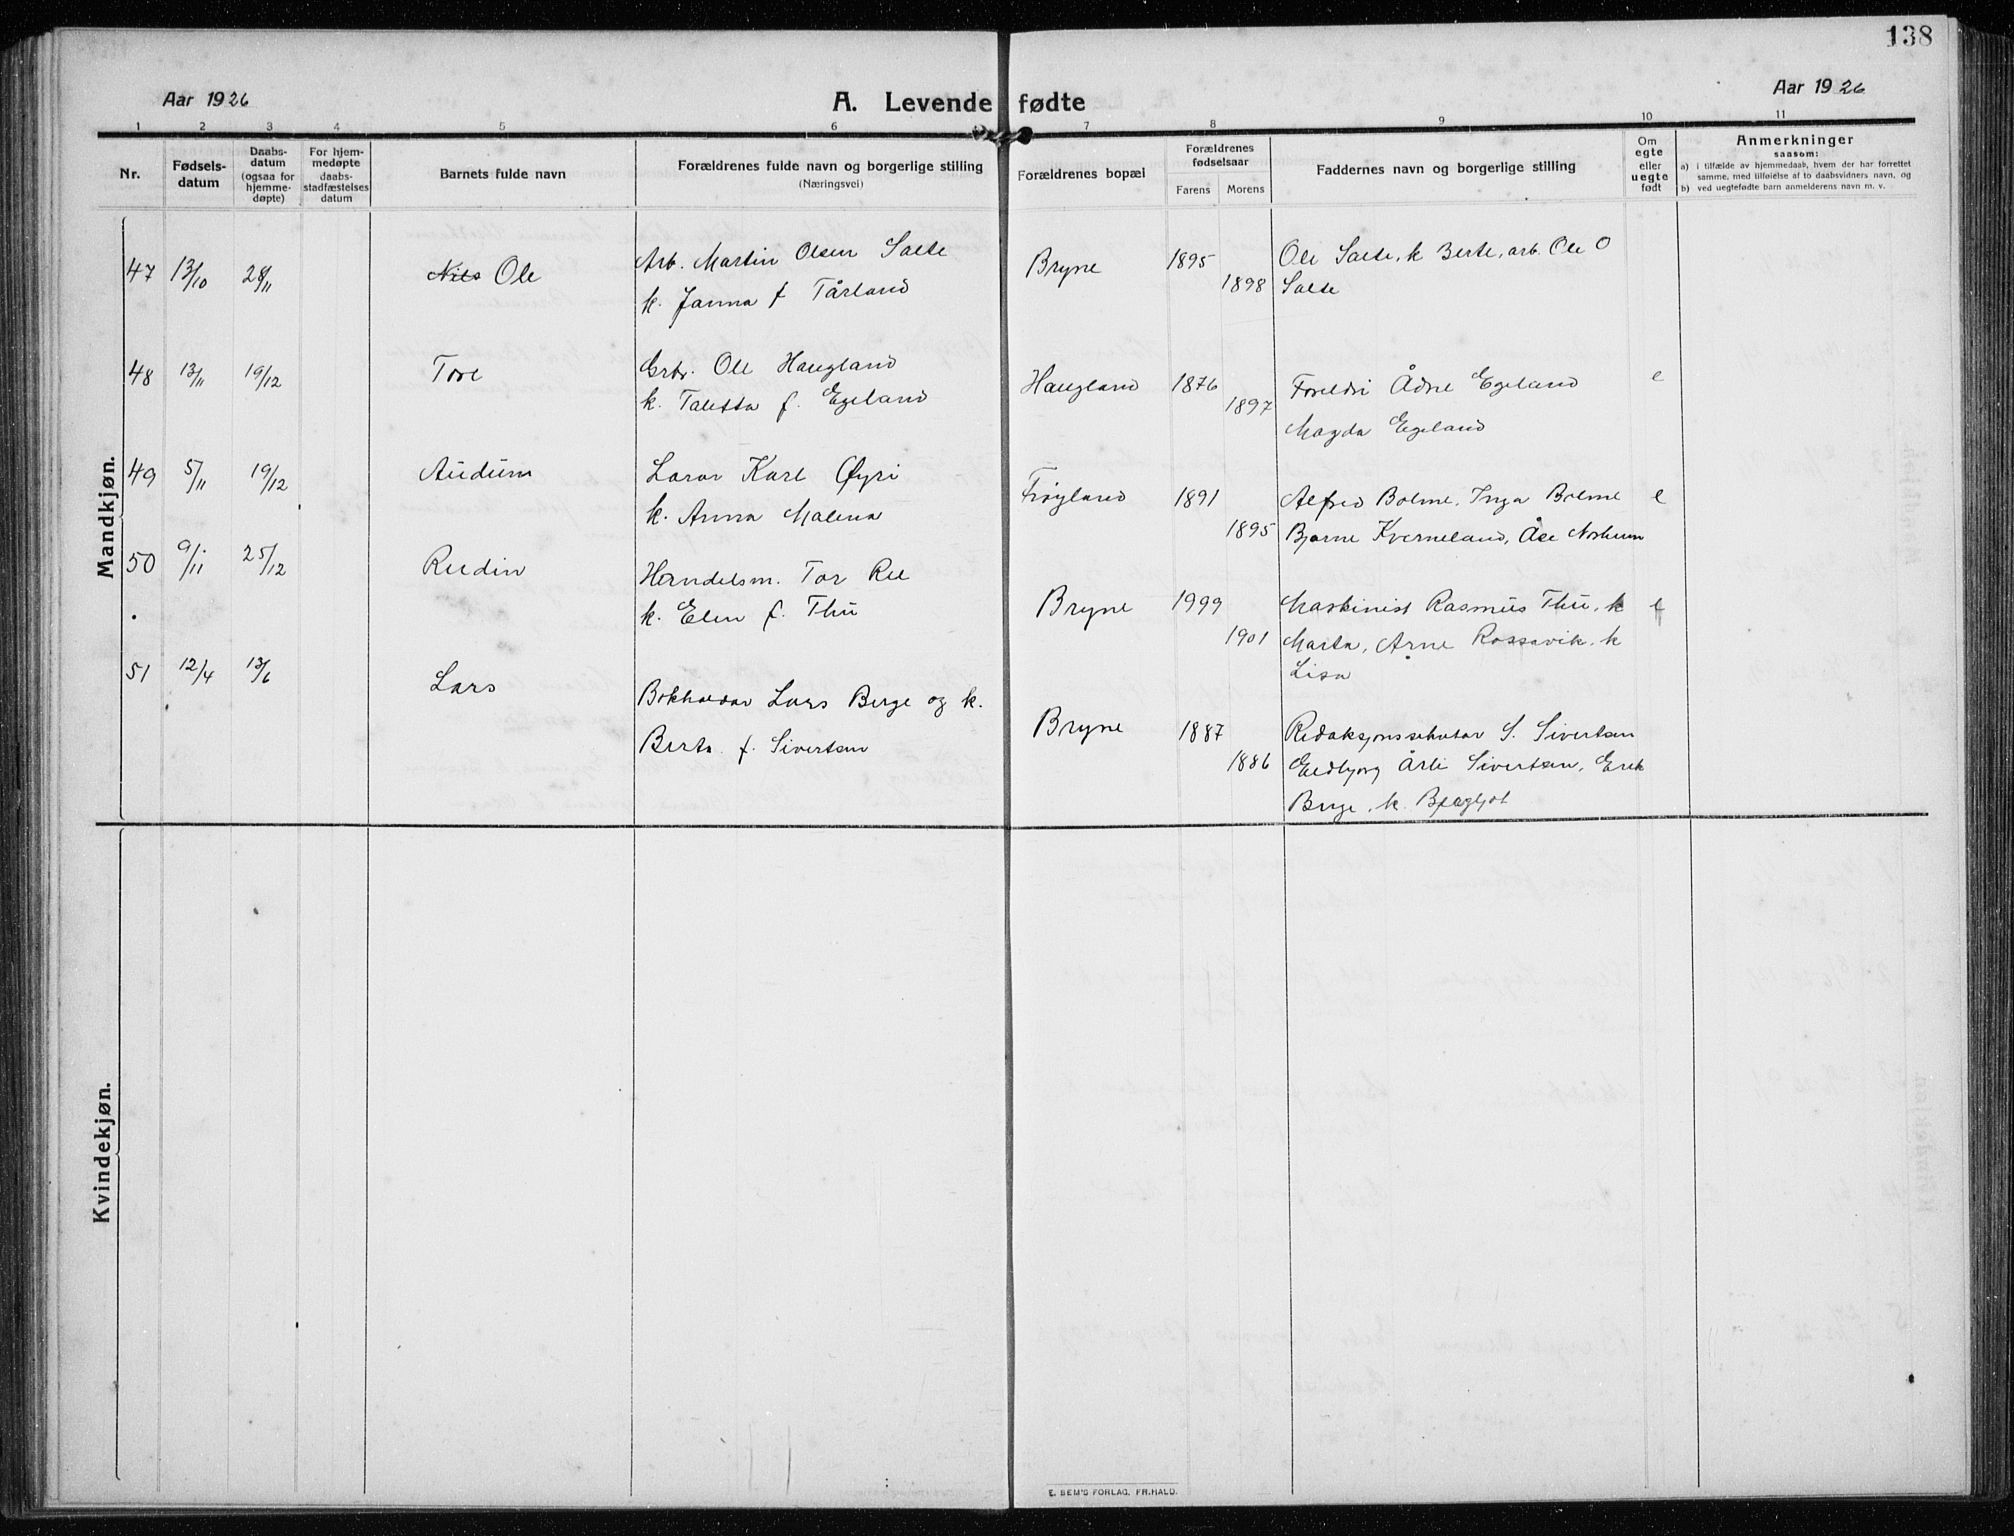 138
Aar 1926
A. Levende fødte
Aar 1926
1 2 3 4 5 6 7 8 9 10 11
Nr.
Fødsels-
datum
Daabs-
datum
(ogsaa for
hjemme-
døpte)
For hjem-
medøpte
daabs-
stadfæstelses
datum
Barnets fulde navn
Forældrenes fulde navn og borgerlige stilling
(Næringsvei)
Forældrenes bopæl
Forældrenes
fødselsaar
Farens Morens
Faddernes navn og borgerlige stilling
Om
egte
eller
uegte
født
Anmerkninger
saasom:
a) i tilfælde av hjemmedaab, hvem der har forrettet
samme, med tilføielse af to daabsvidners navn, og
b) ved uegtefødte barn anmelderens navn m. v.
Mandkjøn.
47 13/10 28/11 Nils Ole
Arb. Martin Olsen Salte
k. Janna f Tårland
Bryne 1895
1898
Ole Salte, k Berte, arb. Ole O
Salte
48 13/11 19/12 Tore
Grbr. Ole Haugland
k. Taletta f. Egeland
Haugland 1876
1897
Foreldri Ådne Egeland e
Magda Egeland
49 5/11 19/12 Audum
Lærar Karl Øyri
k. Anna Malena
Frøyland 1891
1895
Alfred Bolme, Inga Bolme e
Bjarne Kverneland, Åse Norheim
50 9/11 25/12 Reidin
Handelsm. Tor Ree
k. Elen f. Thu
Bryne 1999
1901
Maskinist Rasmus Thu, k e
Marta, Arne Rossavik, k
Lisa
51 12/4 13/6 Lars
Bokhaldar Lars Berge og k.
Berta f. Sivertsen
Bryne 1887
1886
Redaksjonssekretær S. Sivertsen
Eldbjorg Årli Sivertsen, Erik
Berge, k.
Kvindekjøn.
E. SEM'S FORLAG, FR.HALD.